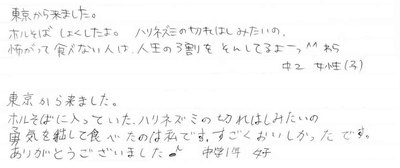 東京から来ました。
ホルそば しょくしたよ。 ハリネズミの切れはしみたいの、
怖がって食べない人は、人生の3割を そんしてるよーっ^^ わら
中2 女性(子)
東京から来ました。
ホルそばに入っていた、ハリネズミの切れはしみたいの
勇気を出して食べたのは私です。すごくおいしかったです。
ありがとうございました♪ 中学1年 女子